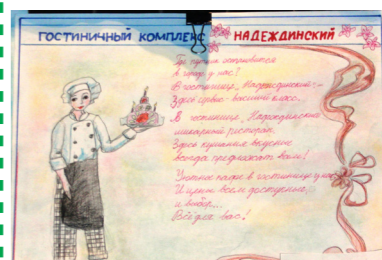 ГОСТИНИЧНЫЙ КОМПЛЕКС НАДЕЖДИНСКИЙ
Где лучше остановится
в городе у нас?
В гостинице "Надеждинский" –
Здесь сервис – высший класс.
А гостинице "Надеждинский"
шикарный ресторан.
Здесь кушания вкусные
всегда предложат вам!
Уютно также в гостинице
И цены всем доступные,
и выбор...
Всё для вас!